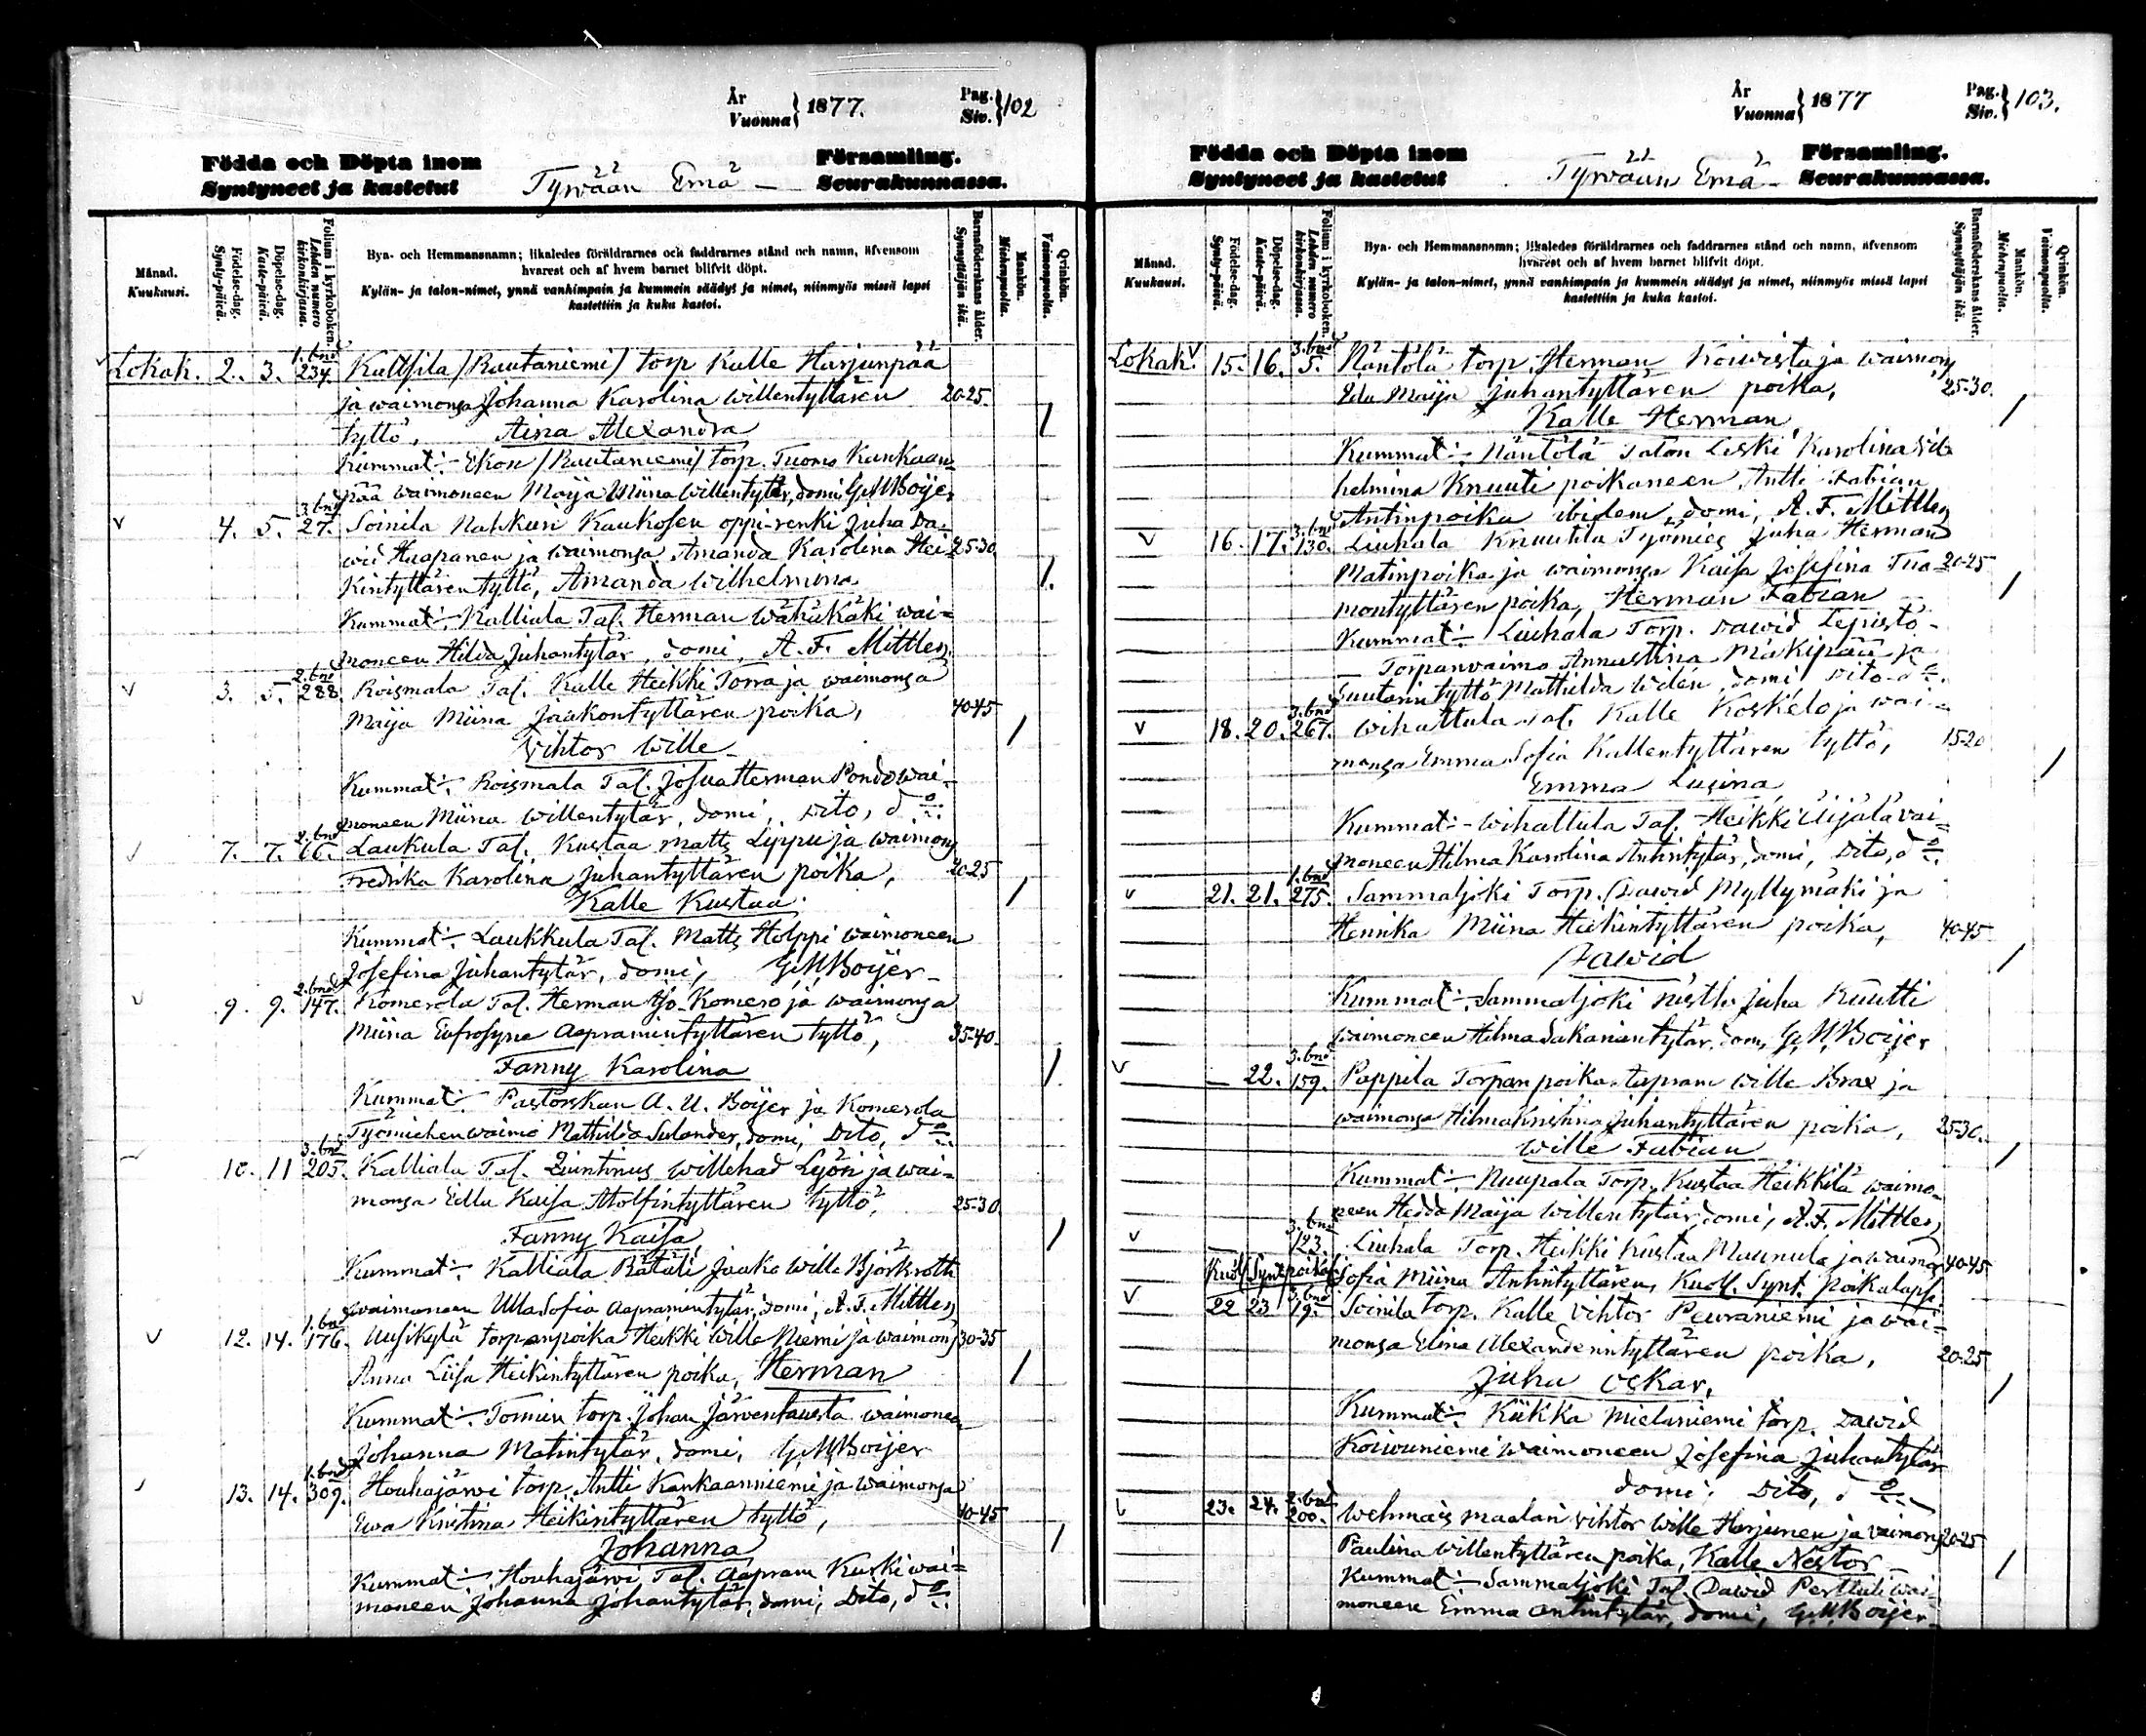 År
Vuonna } 1877.
Pag.
Siv. } 102
Födda och Döpta inom
Syntyneet ja kastetut
Tyrvään Emä-
Församling.
Seurakunnassa.
Månad.
Kuukausi.
Födelse-dag.
Synty-päivä.
Döpelse-dag.
Kaste-päivä.
Folium i kyrkoboken.
Lehden numero kirkonkirjassa.
Bya- och Hemmansnamn; likaledes föräldrarnes och faddrarnes stånd och namn, äfvensom
hvarest och af hvem barnet blifvit döpt.
Kylän- ja talon-nimet, ynnä vanhimpain ja kummein säädyt ja nimet, niinmyös missä lapsi
kastettiin ja kuka kastoi.
Barnaföderskans ålder.
Synnyttäjän ikä.
Mankön.
Miehenpuolta.
Qvinkön.
Vaimonpuolta.
Lokak. 2. 3. 1. bnd 234. Kaltsila /Rautaniemi/ torp Kalle Harjunpää
ja waimonsa Johanna Karolina Willentyttären 20-25.
tyttö, Aina Alexandra /
Kummat:- Ekon /Rautaniemi/ torp. Tuomo Kankaan-
pää waimoneen Maija Miina Willentytär, domi, G.M.Boijer
4. 5. 3. bnd 27. Soinila Nahkuri Kaukosen oppi-renki Juha Da-
wid Haapanen ja waimonsa Amanda Karolina Hei- 25-30
kintyttären tyttö, Amanda Wilhelmina /.
Kummat:- Kalliala Tal. Herman Wähäkäki wai-
moneen Hilda Juhantytär, domi, A. F. Mittler
3. 5. 2. bnd 288. Roismala Tal. Kalle Heikki Torra ja waimonsa
Maija Miina Jaakontyttären poika, 40-45
Vihtor Wille /
Kummat:- Roismala Tal. Josua Herman Pondo wai-
moneen Miina Willentytär, domi, Dito, do
7. 7. 2. bnd 66. Laukula Tal. Kustaa Matts Lyppu ja waimons
Fredrika Karolina Juhantyttären poika, 20-25
Kalle Kustaa. /
Kummat:- Laukkula Tal. Matts Holppi waimoneen
Josefina Juhantytär, domi, G.M.Boijer
9. 9. 2. bnd 147. Komerola Tal. Herman Yjö-Komero ja waimonsa
Miina Eufrosyne Aapramintyttären tyttö, 35-40.
Fanny Karolina /
Kummat:- Pastorskan A. U. Boijer ja Komerola
Työmiehen waimo Mathilda Sulander, domi, Dito, do
10. 11 3. bnd 205. Kalliala Tal. Quintinus Willehad Lyöri ja wai-
monsa Edla Kaisa Atolfintyttären tyttö, 25-30
Fanny Kaisa /
Kummat:- Kalliala Rätäli Jaako Wille Björkroth
waimoneen Ulla Sofia Aapramintytär, domi, A.F. Mittler
12. 14. 1. bnd 176. Uusikylä torpanpoika Heikki Wille Niemi ja waimons 30-35
Anna Liisa Heikintyttären poika, Herman /
Kummat:- Tomun torp. Johan Järventausta waimoneen
Johanna Matintytär, domi, G.M.Boijer
13. 14. 1. bnd 309. Houhajärvi torp. Antti Kankaanniemi ja waimonsa
Ewa Kristina Heikintyttären tyttö, 40-45
Johanna /
Kummat:- Houhajärvi Tal. Aapram Kuski wai-
moneen Johanna Johantytär, domi, Dito, do
År
Vuonna } 1877
Pag.
Siv. } 103.
Födda och Döpta inom
Syntyneet ja kastetut
Tyrvään Emä-
Församling.
Seurakunnassa.
Månad.
Kuukausi.
Födelse-dag.
Synty-päivä.
Döpelse-dag.
Kaste-päivä.
Folium i kyrkoboken.
Lehden numero kirkonkirjassa.
Bya- och Hemmansnamn; likaledes föräldrarnes och faddrarnes stånd och namn, äfvensom
hvarest och af hvem barnet blifvit döpt.
Kylän- ja talon-nimet, ynnä vanhimpain ja kummein säädyt ja nimet, niinmyös missä lapsi
kastettiin ja kuka kastoi.
Barnaföderskans ålder.
Synnyttäjän ikä.
Mankön.
Miehenpuolta.
Qvinkön.
Vaimonpuolta.
Lokak. 15. 16. 3. bnd 5. Näntölä torp. Herman Koiwista ja waimons
Eda Maija Juhantyttären poika, 25-30.
Kalle Herman /
Kummat:- Näntölä Talon Leski Karolina Wil-
helmina Knuuti poikaneen Antti Fabian
Antinpoika ibidem, domi, A. F. Mittler
16. 17. 3. bnd 130. Liuhala Knuutila Työmies Juha Herman
Matinpoika ja waimonsa Kaisa Josefina Tuo- 20-25
montyttären poika, Herman Fabian /
Kummat:- Liuhala Torp. Dawid Lepistö-
Torpanvaimo Annustiina Mäkipää ja
Suutarin tyttö Mathilda Widen, domi, Dito do
18. 20. 3. bnd 267. Wihattula Tal. Kalle Koskelo ja wai-
monsa Emma Sofia Kallentyttären tyttö, 15-20
Emma Lusina /
Kummat:- Wihattula Tal. Heikki Uijälä vai-
moneen Hilma Karolina Antintytär, domi, Dito, do
21. 21. 1. bnd 275. Sammaljoki Torp. Dawid Myllymäki ja
Henrika Miina Heikintyttären poika, 40-45
Dawid /
Kummat:- Sammaljoki Juha Kuutti
waimoneen Hilma Sakariantytär, dom, G.M.Boijer
22. 3. bnd 159. Pappila Torpan poika Aapram Wille Brax ja
waimonsa Hilma Kristina Juhantyttären poika, 25-30.
Wille Fabian /
Kummat:- Nuupala Torp. Kustaa Heikkilä waimo-
neen Hedda Maija Willentytär, domi, A. F. Mittler
3. bnd 123. Liuhala Torp. Heikki Kustaa Muunula ja waimons 40-45
Kuoll. Synt. poika Sofia Miina Antintyttären, Kuoll. Synt. Poikalapsi
22 23 3. bnd 19. Soinila torp. Kalle Vihtor Peuraniemi ja wai-
monsa Elina Alexanderintyttären poika, 20-25
Juha Oskar, /
Kummat:- Kiikka Mielaniemi torp. Dawid
Koiwuniemi waimoneen Josefina Juhantytär
domi, Dito, do
23. 24. 2. bnd 200. Wehmais maalari Vihtor Wille Harjunen ja vaimons 20-25
Paulina Willentyttären poika, Kalle Nestor /
Kummat:- Sammaljoki Tal. Dawid Perttuli wai-
moneen Emma Antintytär, domi, G.M.Boijer